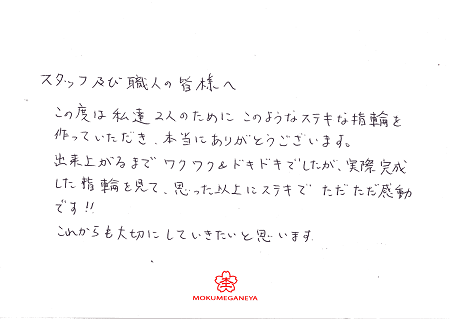 スタッフ及び職人の皆様へ
この度は私達2人のために このようなステキな指輪を
作っていただき、本当にありがとうございます。
出来上がるまでワクワク&ドキドキでしたが、実際完成
した指輪を見て、思った以上にステキで ただただ感動
です!!
これからも大切にしていきたいと思います
MOKUMEGANEYA